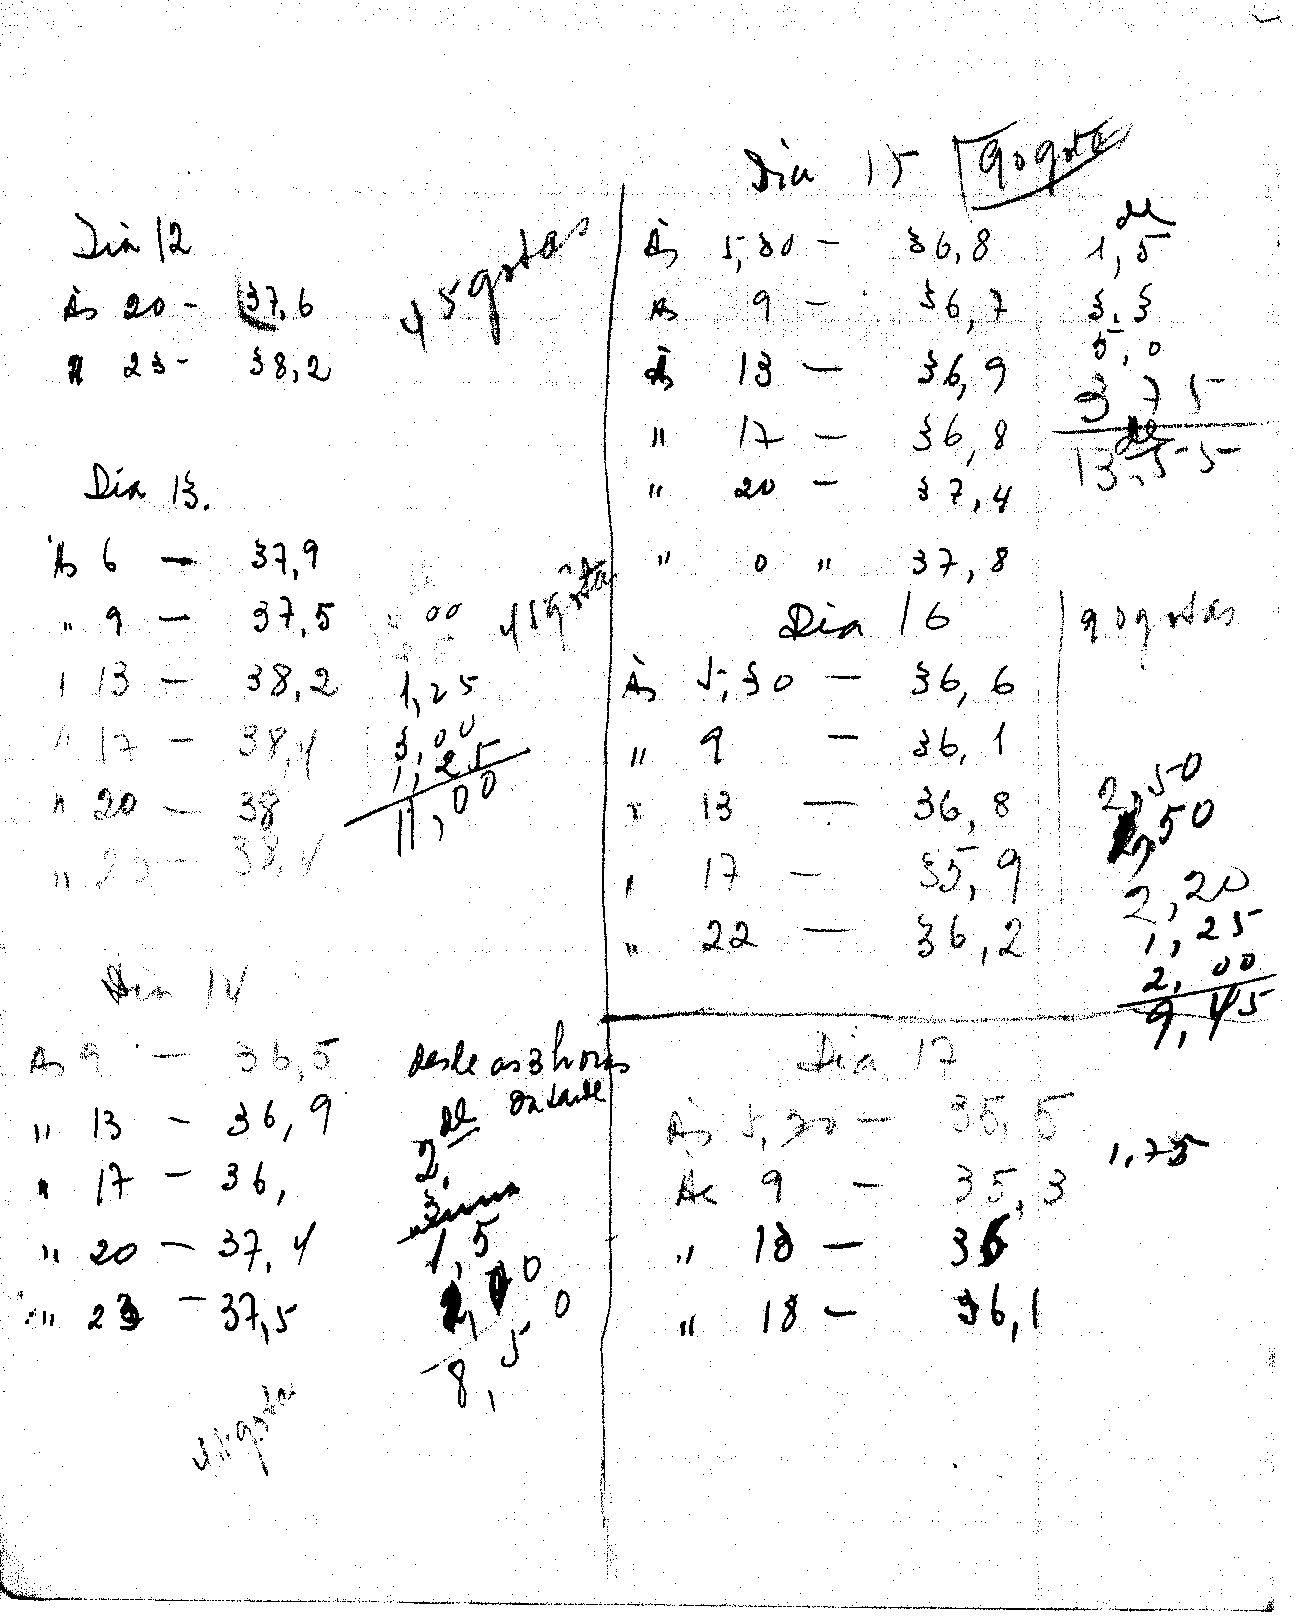 Dia 12
Às 20 - 37,6
" 23 - 38,2
45 gotas
Dia 13.
Às 6 — 37,9
" 9 — 37,5
" 13 — 38,2
" 17 — 38,4
" 20 — 38
" 23 — 38,4
45 gotas
00
1,25
3,00
1,25
11,00
Dia 14
Às 9 — 36,5
" 13 - 36,9
" 17 - 36,
" 20 - 37,4
" 23 - 37,5
desde as 3 horas
da tarde
dl
2,
3
1,5
2,00
8,50
gotas
Dia 15 90 gotas
Às 5,30 - 36,8
As 9 - 36,7
Às 13 — 36,9
" 17 - 36,8
" 20 - 37,4
" 0 " 37,8
dl
1,5
3,3
5,0
375
dl
13,55
Dia 16 90 gotas
Às 5,30 — 36,6
" 9 — 36,1
" 13 — 36,8
" 17 — 35,9
" 22 — 36,2
2,50
2,50
2,20
1,25
2,00
9,45
Dia 17
Às 5,30 — 35,5
Às 9 - 35,3
" 13 — 36
" 18 — 36,1
1,75